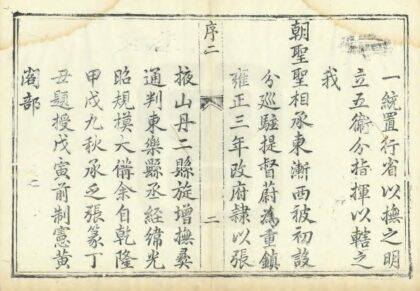 一統置行省以撫之明
立五衞分指揮以轄之
我
朝聖聖相承東漸西被初設
分巡駐提督蔚為重鎮
雍正三年改府隸以張
序二
二
掖山丹二縣旋增撫彝
通判東樂縣丞經緯光
昭規模大備余自乾隆
甲戌九秋承乏張篆丁
丑題授戊寅前制憲黃
閣部